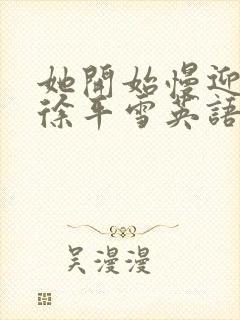 她開始慢迎
徐平雪英語
吳漫漫